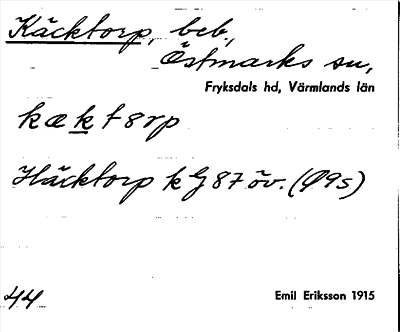 Käcktorp, beb.,
Östmarks sn,
Fryksdals hd, Värmlands län
kækt8rp
Häcktorp kG 87 öv. (Ø9s)
44
Emil Eriksson 1915